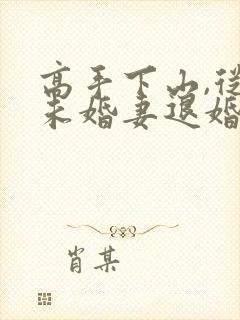 高手下山,从
未婚妻退婚
肖某